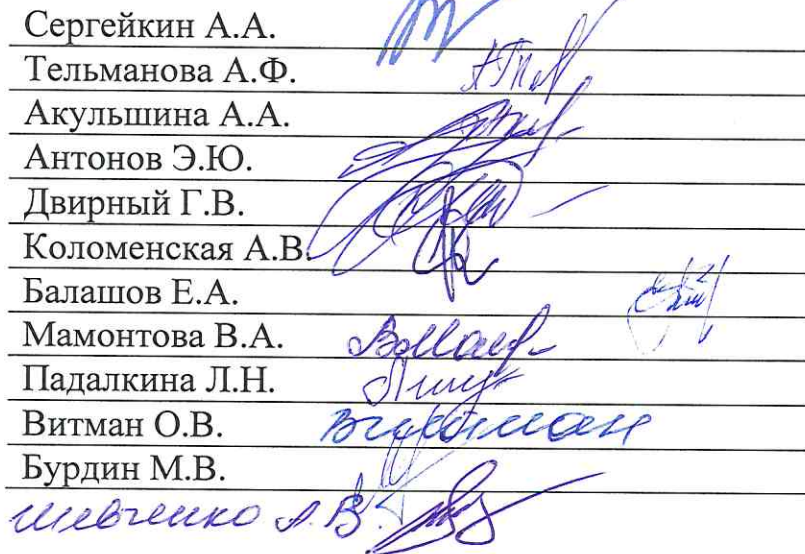 Сергейкин А.А.
Тельманова А.Ф.
Акульшина А.А.
Антонов Э.Ю.
Двирный Г.В.
Коломенская А.В.
Балашов Е.А.
Мамонтова В.А.
Падалкина Л.Н.
Витман О.В. Витман
Бурдин М.В.
Шевченко А.В.